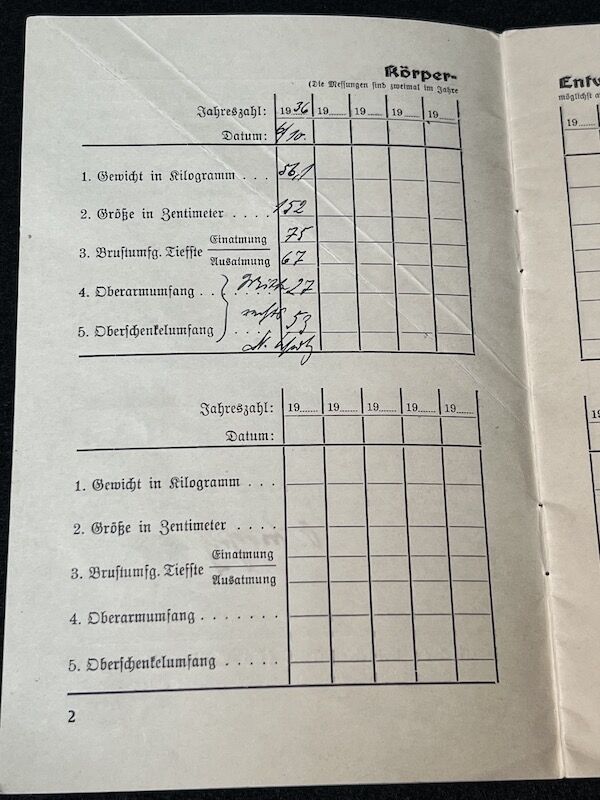 Körper-
(Die Messungen sind zweimal im Jahre
Jahreszahl: 1936 19 19 19 19
Datum:
1. Gewicht in Kilogramm . . . 56,1
2. Größe in Zentimeter . . . . 152
3. Brustumfg. Tiefste Einatmung 75
Ausatmung 67
4. Oberarmumfang . . 27
rechts
5. Oberschenkelumfang . . . 53
Jahreszahl: 19 19 19 19 19
Datum:
1. Gewicht in Kilogramm . . .
2. Größe in Zentimeter . . . .
3. Brustumfg. Tiefste Einatmung
Ausatmung
4. Oberarmumfang . . . . . . .
5. Oberschenkelumfang . . . . .
2
Entw
möglichst
19
19